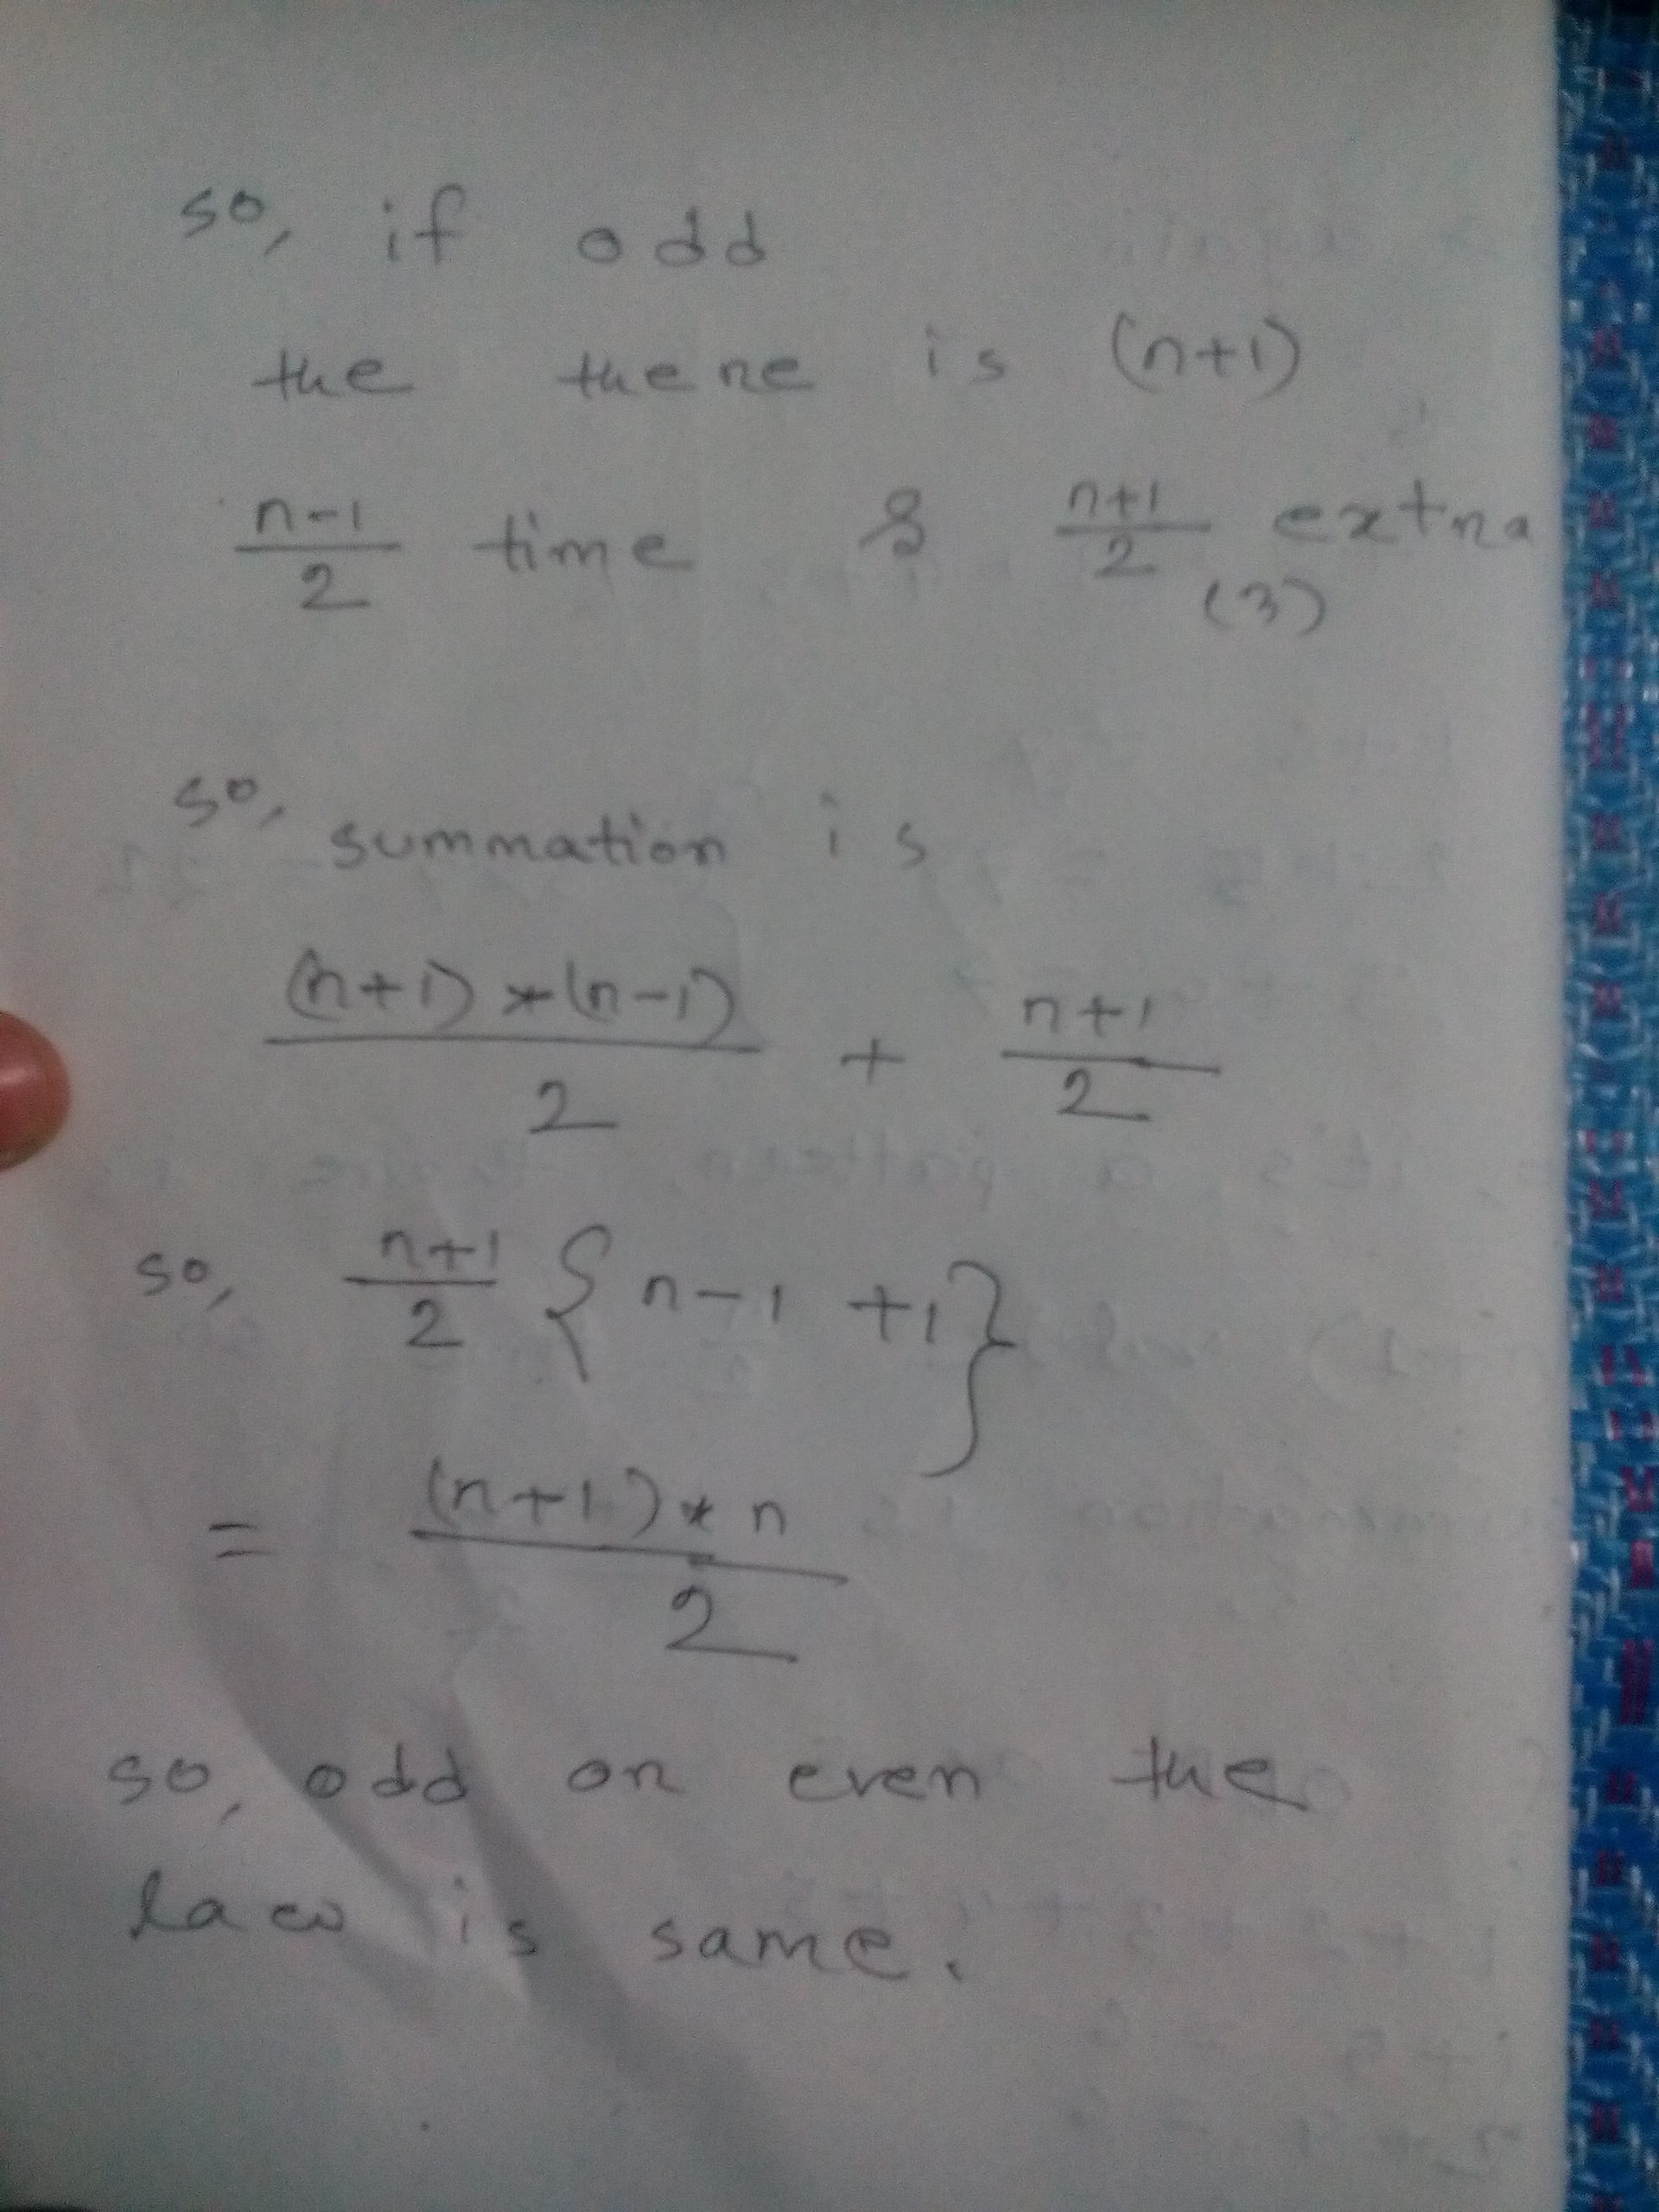 so, if odd
the there is (n+1)
n-1/2 time & n+1/2 extra
(3)
so, summation is
(n+1)*(n-1)/2 + n+1/2
so, n+1/2 {n-1+1}
= (n+1)*n/2
so, odd or even the
law is same.